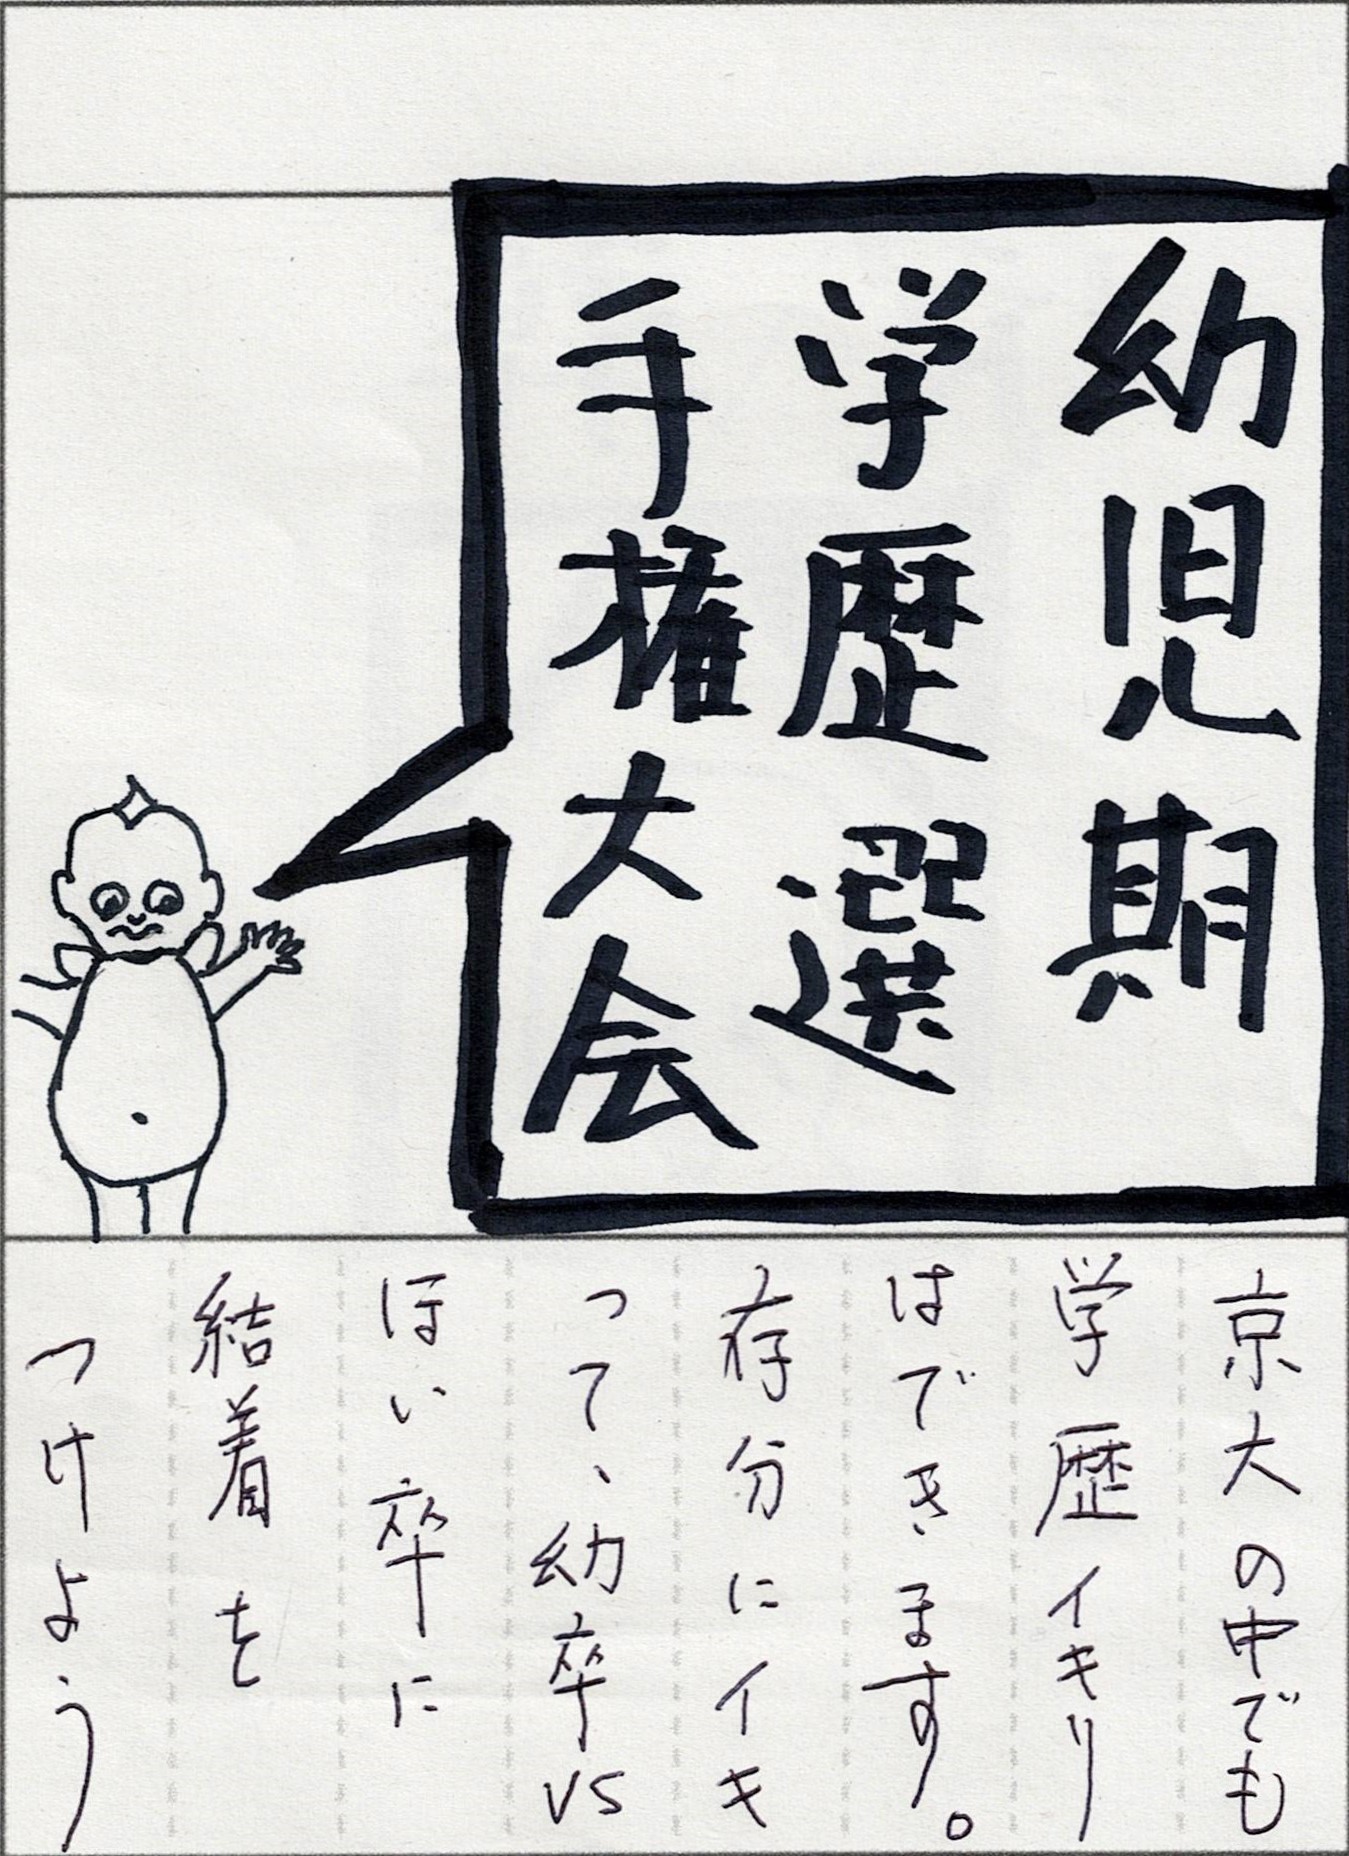 幼児期
学歴選
手権大会
京大の中でも
学歴イキり
はできます。
存分にイキ
って、幼卒vs
ほい卒に
結着を
つけよう